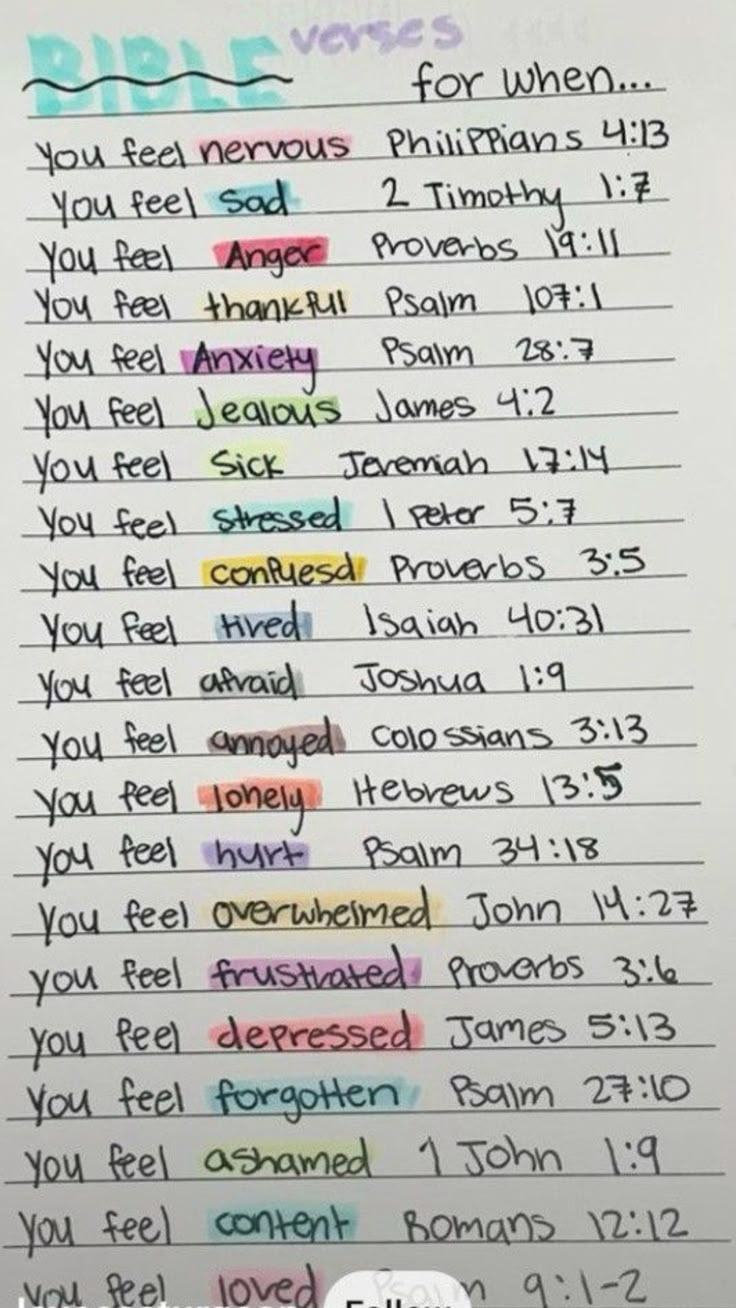 BIBLE verses
for when...
You feel nervous Philippians 4:13
You feel sad 2 Timothy 1:7
You feel Anger Proverbs 19:11
You feel thankful Psalm 107:1
You feel Anxiety Psalm 28:7
You feel Jealous James 4:2
You feel Sick Jeremiah 17:14
You feel stressed 1 Peter 5:7
You feel confuesd Proverbs 3:5
You feel tired Isaiah 40:31
You feel afraid Joshua 1:9
You feel annoyed Colossians 3:13
You feel lonely Hebrews 13:5
You feel hurt Psalm 34:18
You feel overwhelmed John 14:27
you feel frustrated Proverbs 3:6
you feel depressed James 5:13
You feel forgotten Psalm 27:10
you feel ashamed 1 John 1:9
you feel content Romans 12:12
you feel loved Psalm 9:1-2